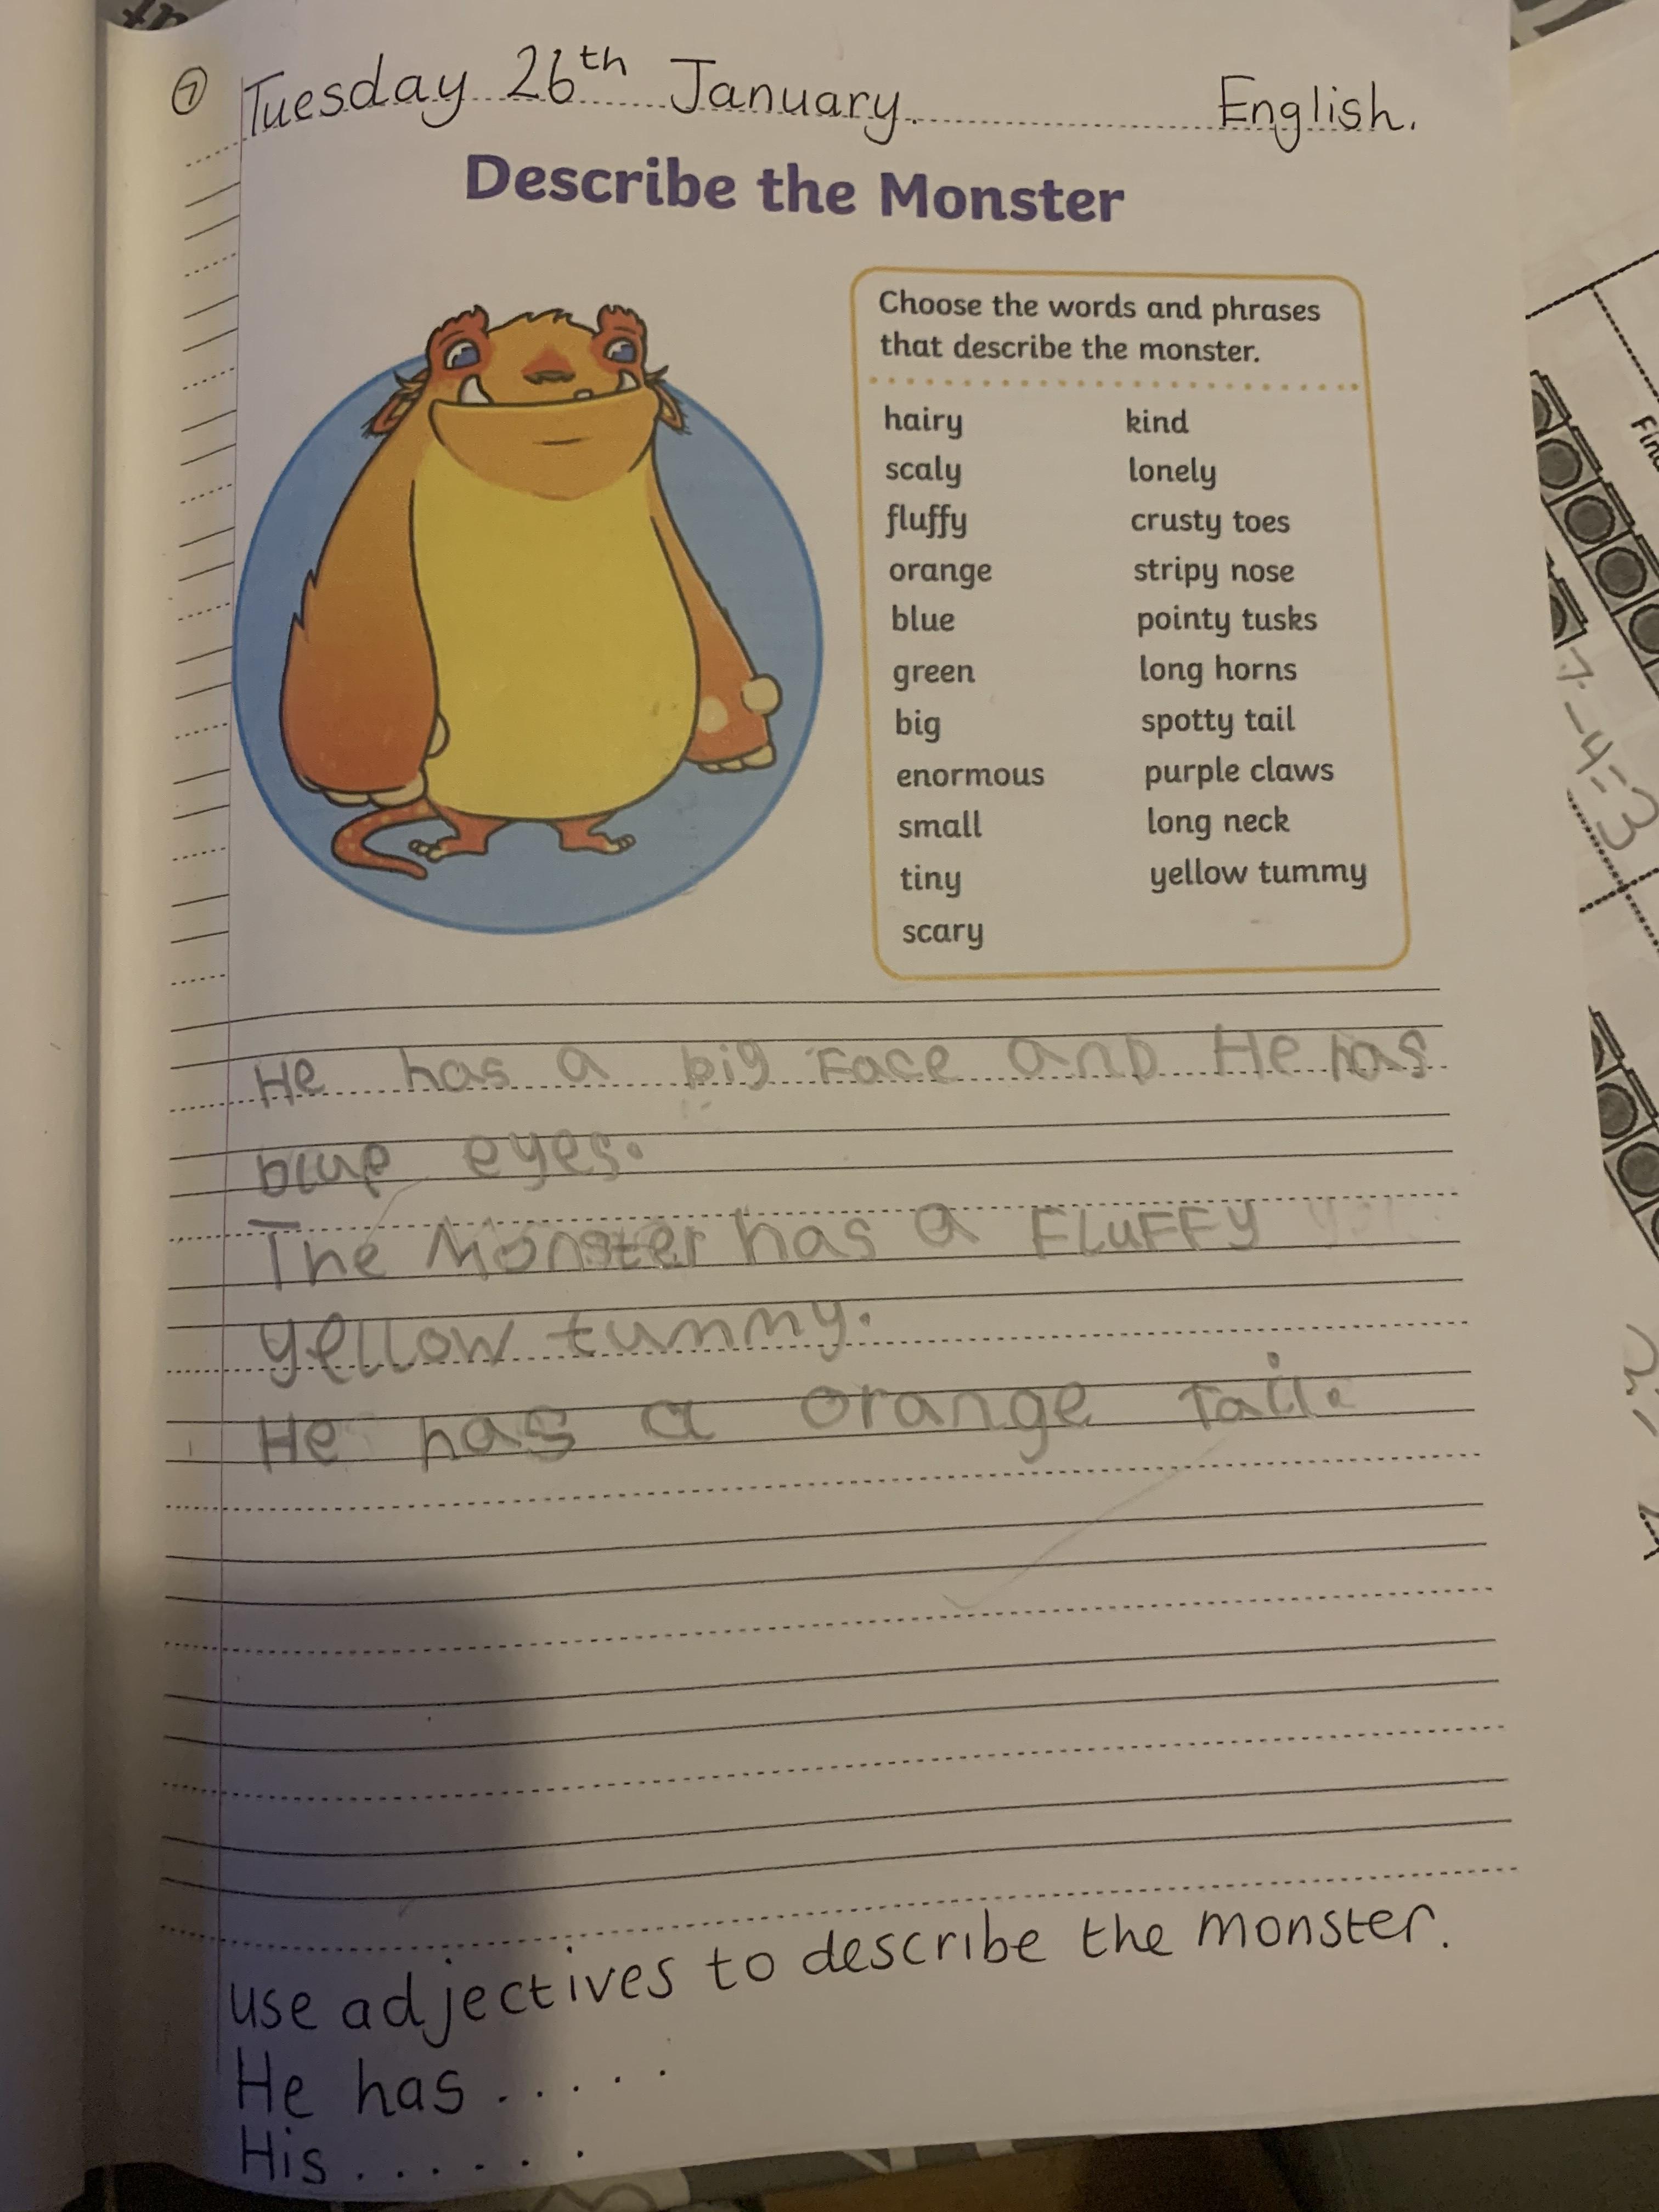 7 Tuesday 26th January. English.
Describe the Monster
Choose the words and phrases
that describe the monster.
hairy kind
scaly lonely
fluffy crusty toes
orange stripy nose
blue pointy tusks
green long horns
big spotty tail
enormous purple claws
small long neck
tiny yellow tummy
scary
He has a big Face and He has
blue eyes.
The Monster has a FLuFFY
yellow tummy.
He has a orange Tail.
use adjectives to describe the monster.
He has .....
His ......
7-4=3